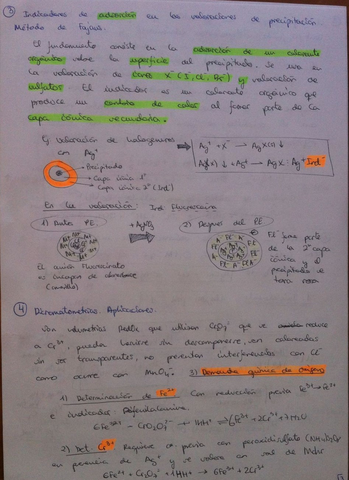 ③ Indicadores de adsorción en las valoraciones de precipitación
Método de Fajans.
El fundamento consiste en la adsorción de un colorante
orgánico sobre la superficie del precipitado. Se usa en
la valoración de iones X⁻ (I⁻, Cl⁻, Br⁻) y valoración de
sulfatos. El indicador es un colorante orgánico que
produce un cambio de color al formar parte de la
capa iónica secundaria.
Ej valoración de halogenuros
con Ag⁺
Precipitado
Capa iónica 1ª
Capa iónica 2ª (Ind)
Ag⁺ + X⁻ → AgX(s) ↓
AgX(s) ↓ + Ag⁺ → AgX : Ag⁺ Ind⁻
En la valoración: Ind Fluoresceína
1) Antes P.E.
+ AgNO₃
2) Después del P.E
El anión Fluoresceinato
es incapaz de adsorberse
(amarillo)
Fl⁻ forma parte
de la 2ª capa
iónica y el
precipitado se
torna rosa
④ Dicromatometrías. Aplicaciones:
Son volumetrías Redox que utilizan Cr₂O₇²⁻ que se reduce
a Cr³⁺, pueden hervirse sin descomponerse, son coloreadas
sin ser transparentes, no presentan interferencias con Cl⁻
como ocurre con MnO₄⁻. 3) Demanda química de oxígeno
1) Determinación de Fe²⁺ Con reducción previa Fe³⁺→Fe²⁺
e indicador: Difenilamina.
6Fe²⁺ + Cr₂O₇²⁻ + 14H⁺ → 6Fe³⁺ + 2Cr³⁺ + 7H₂O
2) Det. Cr³⁺ Requiere ox previa con peroxidisulfato (NH₄)₂S₂O₈
en presencia de Ag⁺ y se valora con sal de Mohr
6Fe²⁺ + Cr₂O₇²⁻ + 14H⁺ → 6Fe³⁺ + 2Cr³⁺